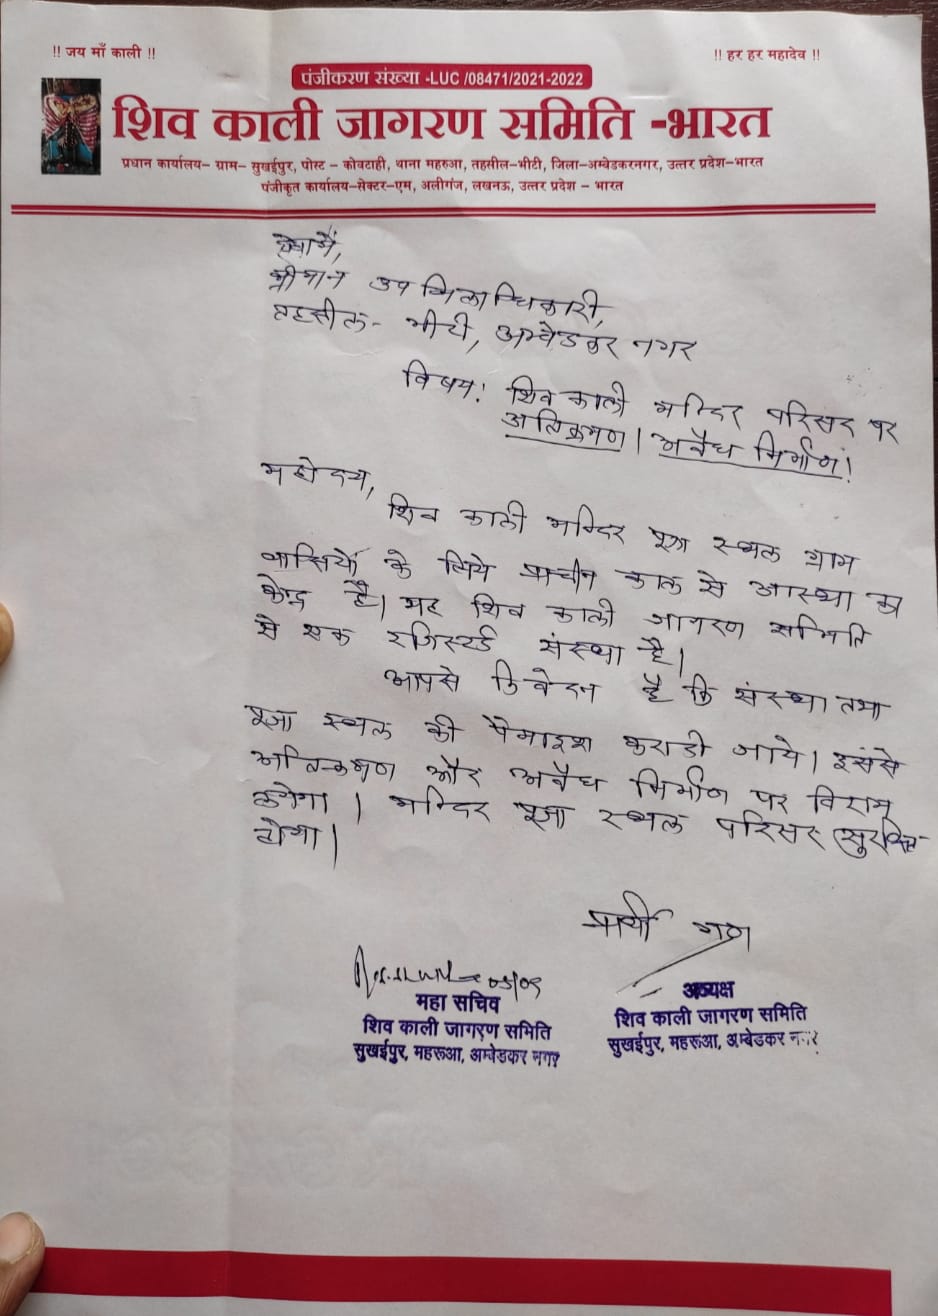 !! जय माँ काली !!
!! हर हर महादेव !!
पंजीकरण संख्या -LUC /08471/2021-2022
शिव काली जागरण समिति -भारत
प्रधान कार्यालय– ग्राम– सुखईपुर, पोस्ट – कोवटाही, थाना महरुआ, तहसील–भीटी, जिला–अम्बेडकरनगर, उत्तर प्रदेश–भारत
पंजीकृत कार्यालय–सेक्टर–एम, अलीगंज, लखनऊ, उत्तर प्रदेश – भारत
सेवा में,
श्रीमान उप जिलाधिकारी,
तहसील- भीटी, अम्बेडकर नगर
विषय: शिव काली मन्दिर परिसर पर
अतिक्रमण । अवैध निर्माण।
महोदय,
शिव काली मन्दिर पूजा स्थल ग्राम
वासियों के लिये प्राचीन काल से आस्था का
केन्द्र है। यह शिव काली जागरण समिति
से एक रजिस्टर्ड संस्था है।
आपसे निवेदन है कि संस्था तथा
पूजा स्थल की पैमाइश कराई जाये। इससे
अतिक्रमण और अवैध निर्माण पर विराम
लगेगा । मन्दिर पूजा स्थल परिसर सुरक्षित
होगा।
प्रार्थी गण
महा सचिव
शिव काली जागरण समिति
सुखईपुर, महरूआ, अम्बेडकर नगर
अध्यक्ष
शिव काली जागरण समिति
सुखईपुर, महरूआ, अम्बेडकर नगर